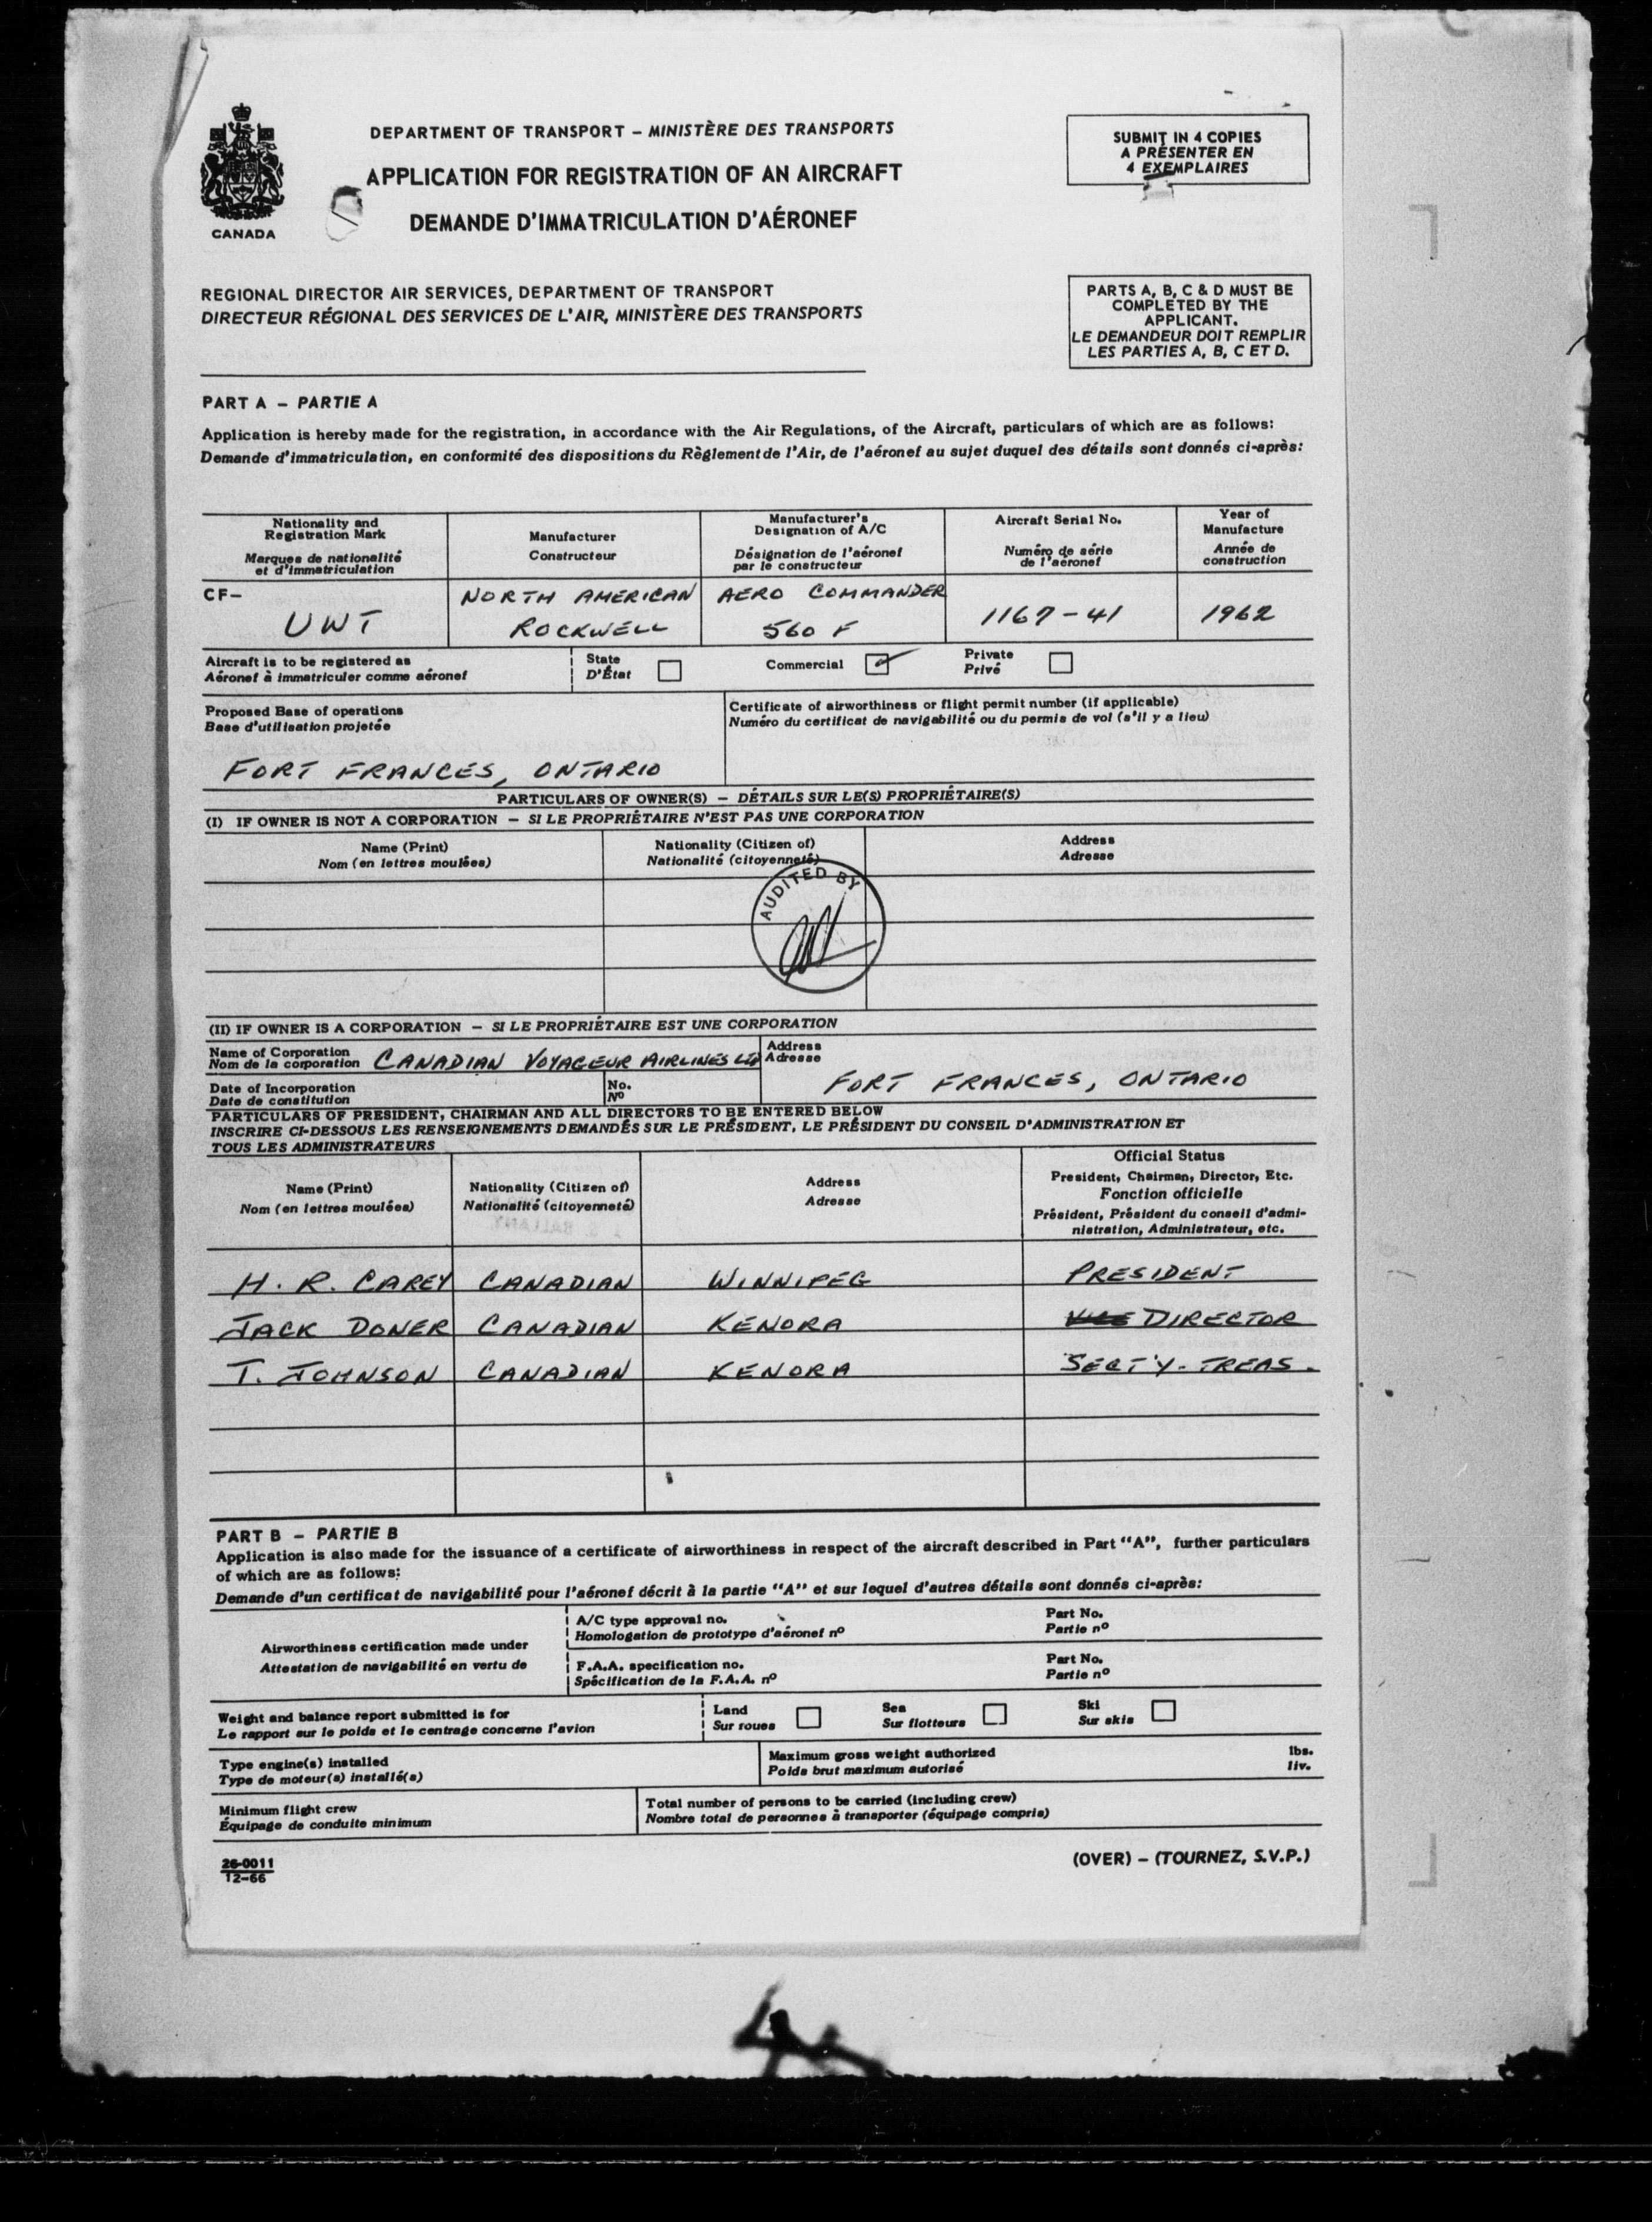 CANADA
DEPARTMENT OF TRANSPORT – MINISTÈRE DES TRANSPORTS
APPLICATION FOR REGISTRATION OF AN AIRCRAFT
DEMANDE D'IMMATRICULATION D'AÉRONEF
SUBMIT IN 4 COPIES
A PRÉSENTER EN
4 EXEMPLAIRES
REGIONAL DIRECTOR AIR SERVICES, DEPARTMENT OF TRANSPORT
DIRECTEUR RÉGIONAL DES SERVICES DE L'AIR, MINISTÈRE DES TRANSPORTS
PARTS A, B, C & D MUST BE
COMPLETED BY THE
APPLICANT.
LE DEMANDEUR DOIT REMPLIR
LES PARTIES A, B, C ET D.
PART A – PARTIE A
Application is hereby made for the registration, in accordance with the Air Regulations, of the Aircraft, particulars of which are as follows:
Demande d'immatriculation, en conformité des dispositions du Règlement de l'Air, de l'aéronef au sujet duquel des détails sont donnés ci-après:
Nationality and
Registration Mark
Marques de nationalité
et d'immatriculation
Manufacturer
Constructeur
Manufacturer's
Designation of A/C
Désignation de l'aéronef
par le constructeur
Aircraft Serial No.
Numéro de série
de l'aéronef
Year of
Manufacture
Année de
construction
CF–
UWT
NORTH AMERICAN
ROCKWELL
AERO COMMANDER
560 F
1167-41
1962
Aircraft is to be registered as
Aéronef à immatriculer comme aéronef
State
D'État
Commercial
Private
Privé
Proposed Base of operations
Base d'utilisation projetée
FORT FRANCES, ONTARIO
Certificate of airworthiness or flight permit number (if applicable)
Numéro du certificat de navigabilité ou du permis de vol (s'il y a lieu)
PARTICULARS OF OWNER(S) – DÉTAILS SUR LE(S) PROPRIÉTAIRE(S)
(I) IF OWNER IS NOT A CORPORATION – SI LE PROPRIÉTAIRE N'EST PAS UNE CORPORATION
Name (Print)
Nom (en lettres moulées)
Nationality (Citizen of)
Nationalité (citoyenneté)
Address
Adresse
AUDITED BY
(II) IF OWNER IS A CORPORATION – SI LE PROPRIÉTAIRE EST UNE CORPORATION
Name of Corporation
Nom de la corporation
CANADIAN VOYAGEUR AIRLINES LTD
Address
Adresse
FORT FRANCES, ONTARIO
Date of Incorporation
Date de constitution
No.
Nº
PARTICULARS OF PRESIDENT, CHAIRMAN AND ALL DIRECTORS TO BE ENTERED BELOW
INSCRIRE CI-DESSOUS LES RENSEIGNEMENTS DEMANDÉS SUR LE PRÉSIDENT, LE PRÉSIDENT DU CONSEIL D'ADMINISTRATION ET
TOUS LES ADMINISTRATEURS
Name (Print)
Nom (en lettres moulées)
Nationality (Citizen of)
Nationalité (citoyenneté)
Address
Adresse
Official Status
President, Chairman, Director, Etc.
Fonction officielle
Président, Président du conseil d'admi-
nistration, Administrateur, etc.
H. R. CAREY CANADIAN WINNIPEG PRESIDENT
JACK DONER CANADIAN KENORA VICE DIRECTOR
T. JOHNSON CANADIAN KENORA SECT'Y-TREAS.
PART B – PARTIE B
Application is also made for the issuance of a certificate of airworthiness in respect of the aircraft described in Part "A", further particulars
of which are as follows:
Demande d'un certificat de navigabilité pour l'aéronef décrit à la partie "A" et sur lequel d'autres détails sont donnés ci-après:
Airworthiness certification made under
Attestation de navigabilité en vertu de
A/C type approval no.
Homologation de prototype d'aéronef nº
Part No.
Partie nº
F.A.A. specification no.
Spécification de la F.A.A. nº
Part No.
Partie nº
Weight and balance report submitted is for
Le rapport sur le poids et le centrage concerne l'avion
Land
Sur roues
Sea
Sur flotteurs
Ski
Sur skis
Type engine(s) installed
Type de moteur(s) installé(s)
Maximum gross weight authorized
Poids brut maximum autorisé
lbs.
liv.
Minimum flight crew
Équipage de conduite minimum
Total number of persons to be carried (including crew)
Nombre total de personnes à transporter (équipage compris)
26-0011
12-66
(OVER) – (TOURNEZ, S.V.P.)